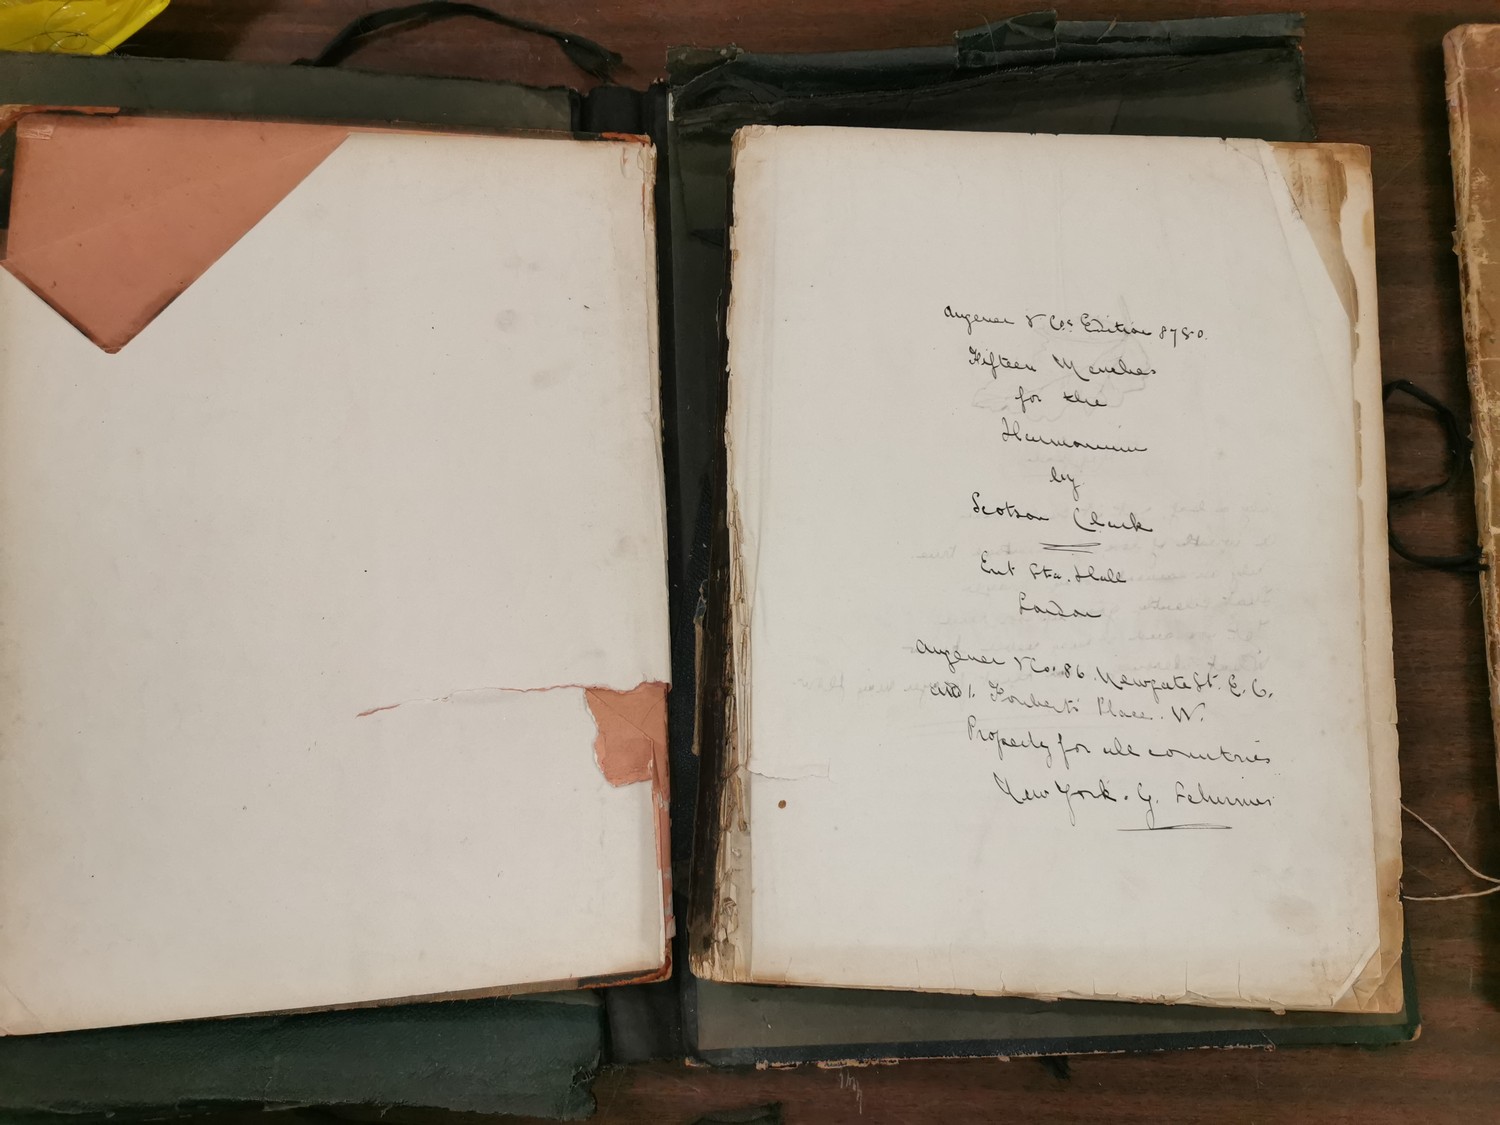 Augener & Co's Edition 8750.
Fifteen Marches
for the
Harmonium
by
Scotson Clark
Ent Sta. Hall
London
Augener & Co. 86. Newgate St. E. C.
and 1. Foubert's Place. W.
Property for all countries
New York. G. Schirmer